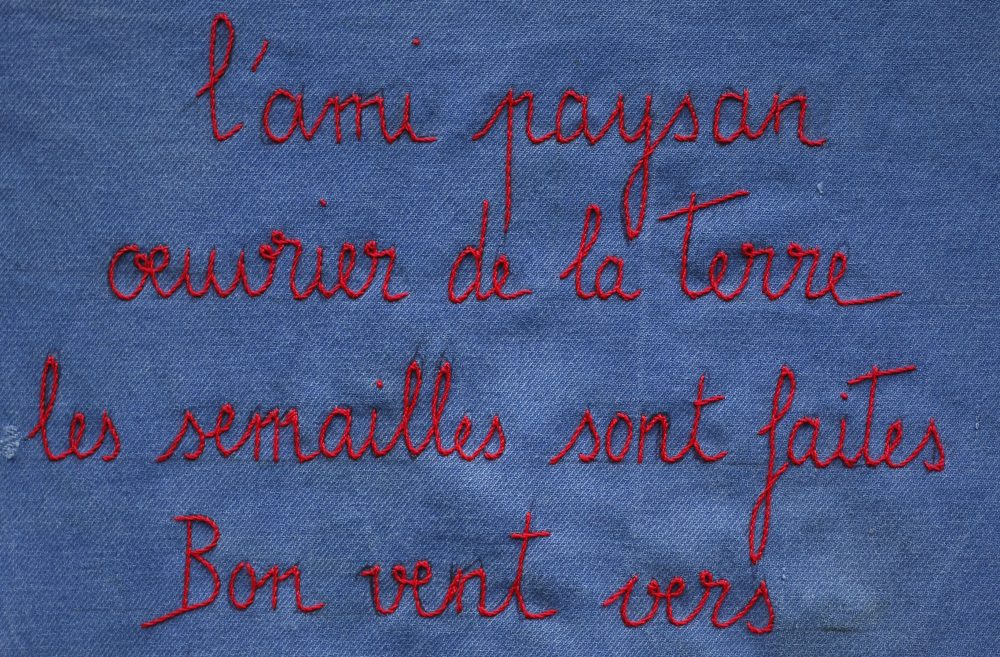 l'ami paysan
œuvrier de la terre
les semailles sont faites
Bon vent vers